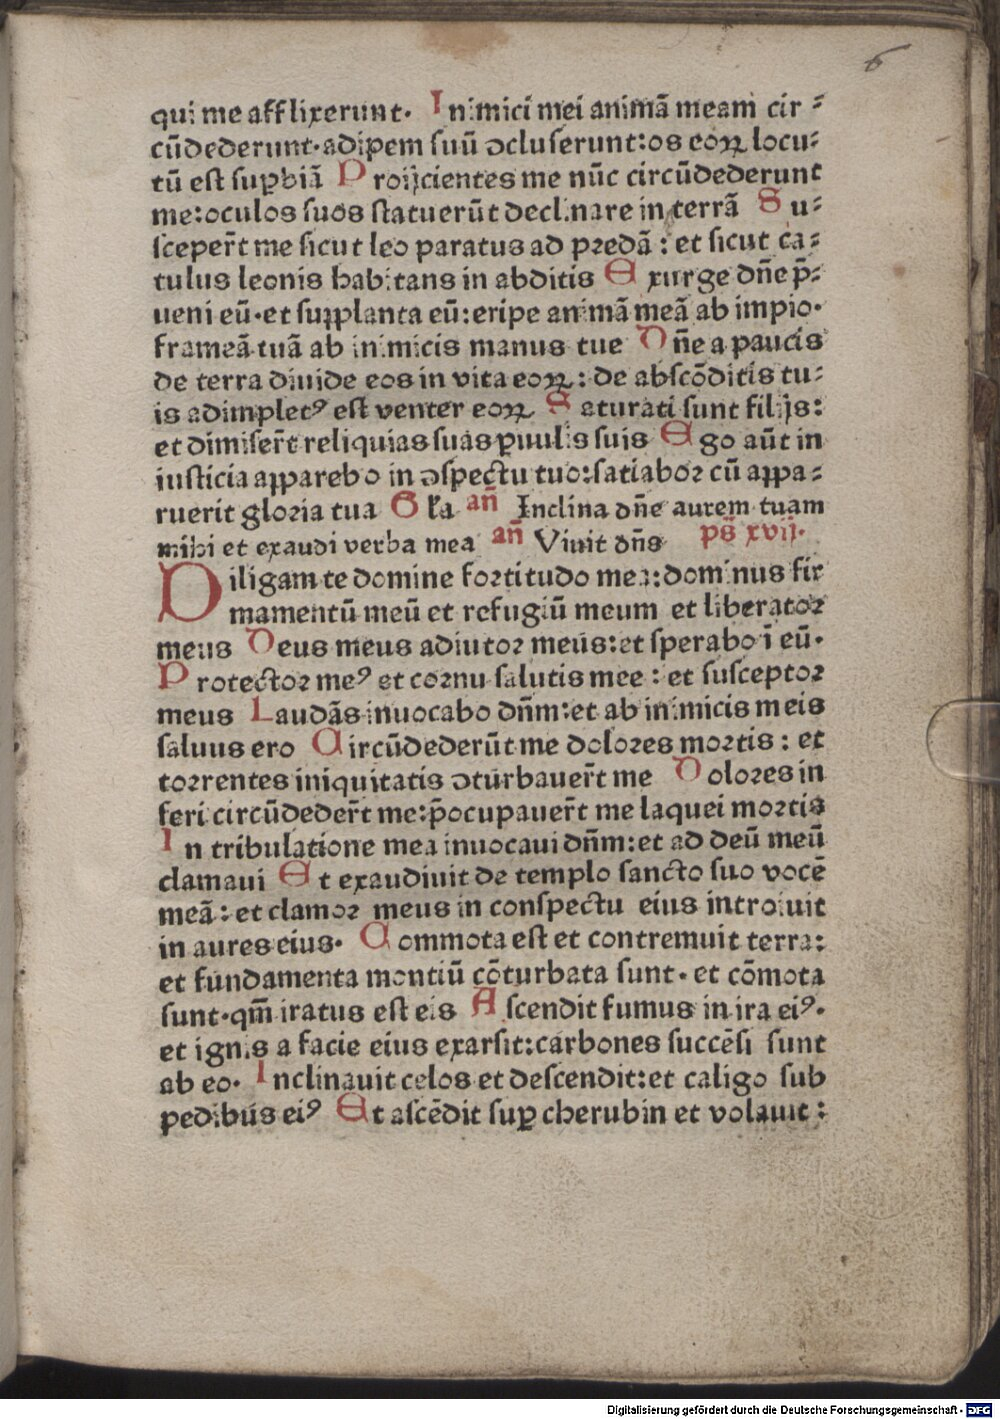 6
qui me afflixerunt. Inimici mei animã meam cir⸗
cũdederunt.adipem suũ ↄcluserunt:os eoꝝ locu⸗
tũ est suꝑbiã Proijcientes me nũc circũdederunt
me:oculos suos statuerũt declinare in terrã Su⸗
sceper̃t me sicut leo paratus ad predã : et sicut ca⸗
tulus leonis habitans in abditis Exurge dñe p̃⸗
ueni eũ.et supplanta eũ:eripe animã meã ab impio.
frameã tuã ab inimicis manus tue Dñe a paucis
de terra diuide eos in vita eoꝝ : de abscõditis tu⸗
is adimpletꝰ est venter eoꝝ Saturati sunt filijs:
et dimiser̃t reliquias suas ꝑuulis suis Ego aũt in
iusticia apparebo in ↄspectu tuo:satiabor cũ appa⸗
ruerit gloria tua Gľa añ Inclina dñe aurem tuam
mihi et exaudi verba mea añ Viuit dñs ps̃ xvij.
Diligam te domine fortitudo mea:dominus fir
mamentũ meũ et refugiũ meum et liberator
meus Deus meus adiutor meus:et sperabo ĩ eũ.
Protector meꝰ et cornu salutis mee : et susceptor
meus Laudãs inuocabo dñm:et ab inimicis meis
saluus ero Circũdederũt me dolores mortis : et
torrentes iniquitatis ↄturbauer̃t me Dolores in
feri circũdeder̃t me:p̃ocupauer̃t me laquei mortis
In tribulatione mea inuocaui dñm:et ad deũ meũ
clamaui Et exaudiuit de templo sancto suo vocẽ
meã : et clamor meus in conspectu eius introiuit
in aures eius. Commota est et contremuit terra:
et fundamenta montiũ cõturbata sunt. et cõmota
sunt.qm̃ iratus est eis Ascendit fumus in ira eiꝰ.
et ignis a facie eius exarsit:carbones succẽsi sunt
ab eo. Inclinauit celos et descendit:et caligo sub
pedibus eiꝰ Et ascẽdit suꝑ cherubin et volauit :
Digitalisierung gefördert durch die Deutsche Forschungsgemeinschaft - DFG